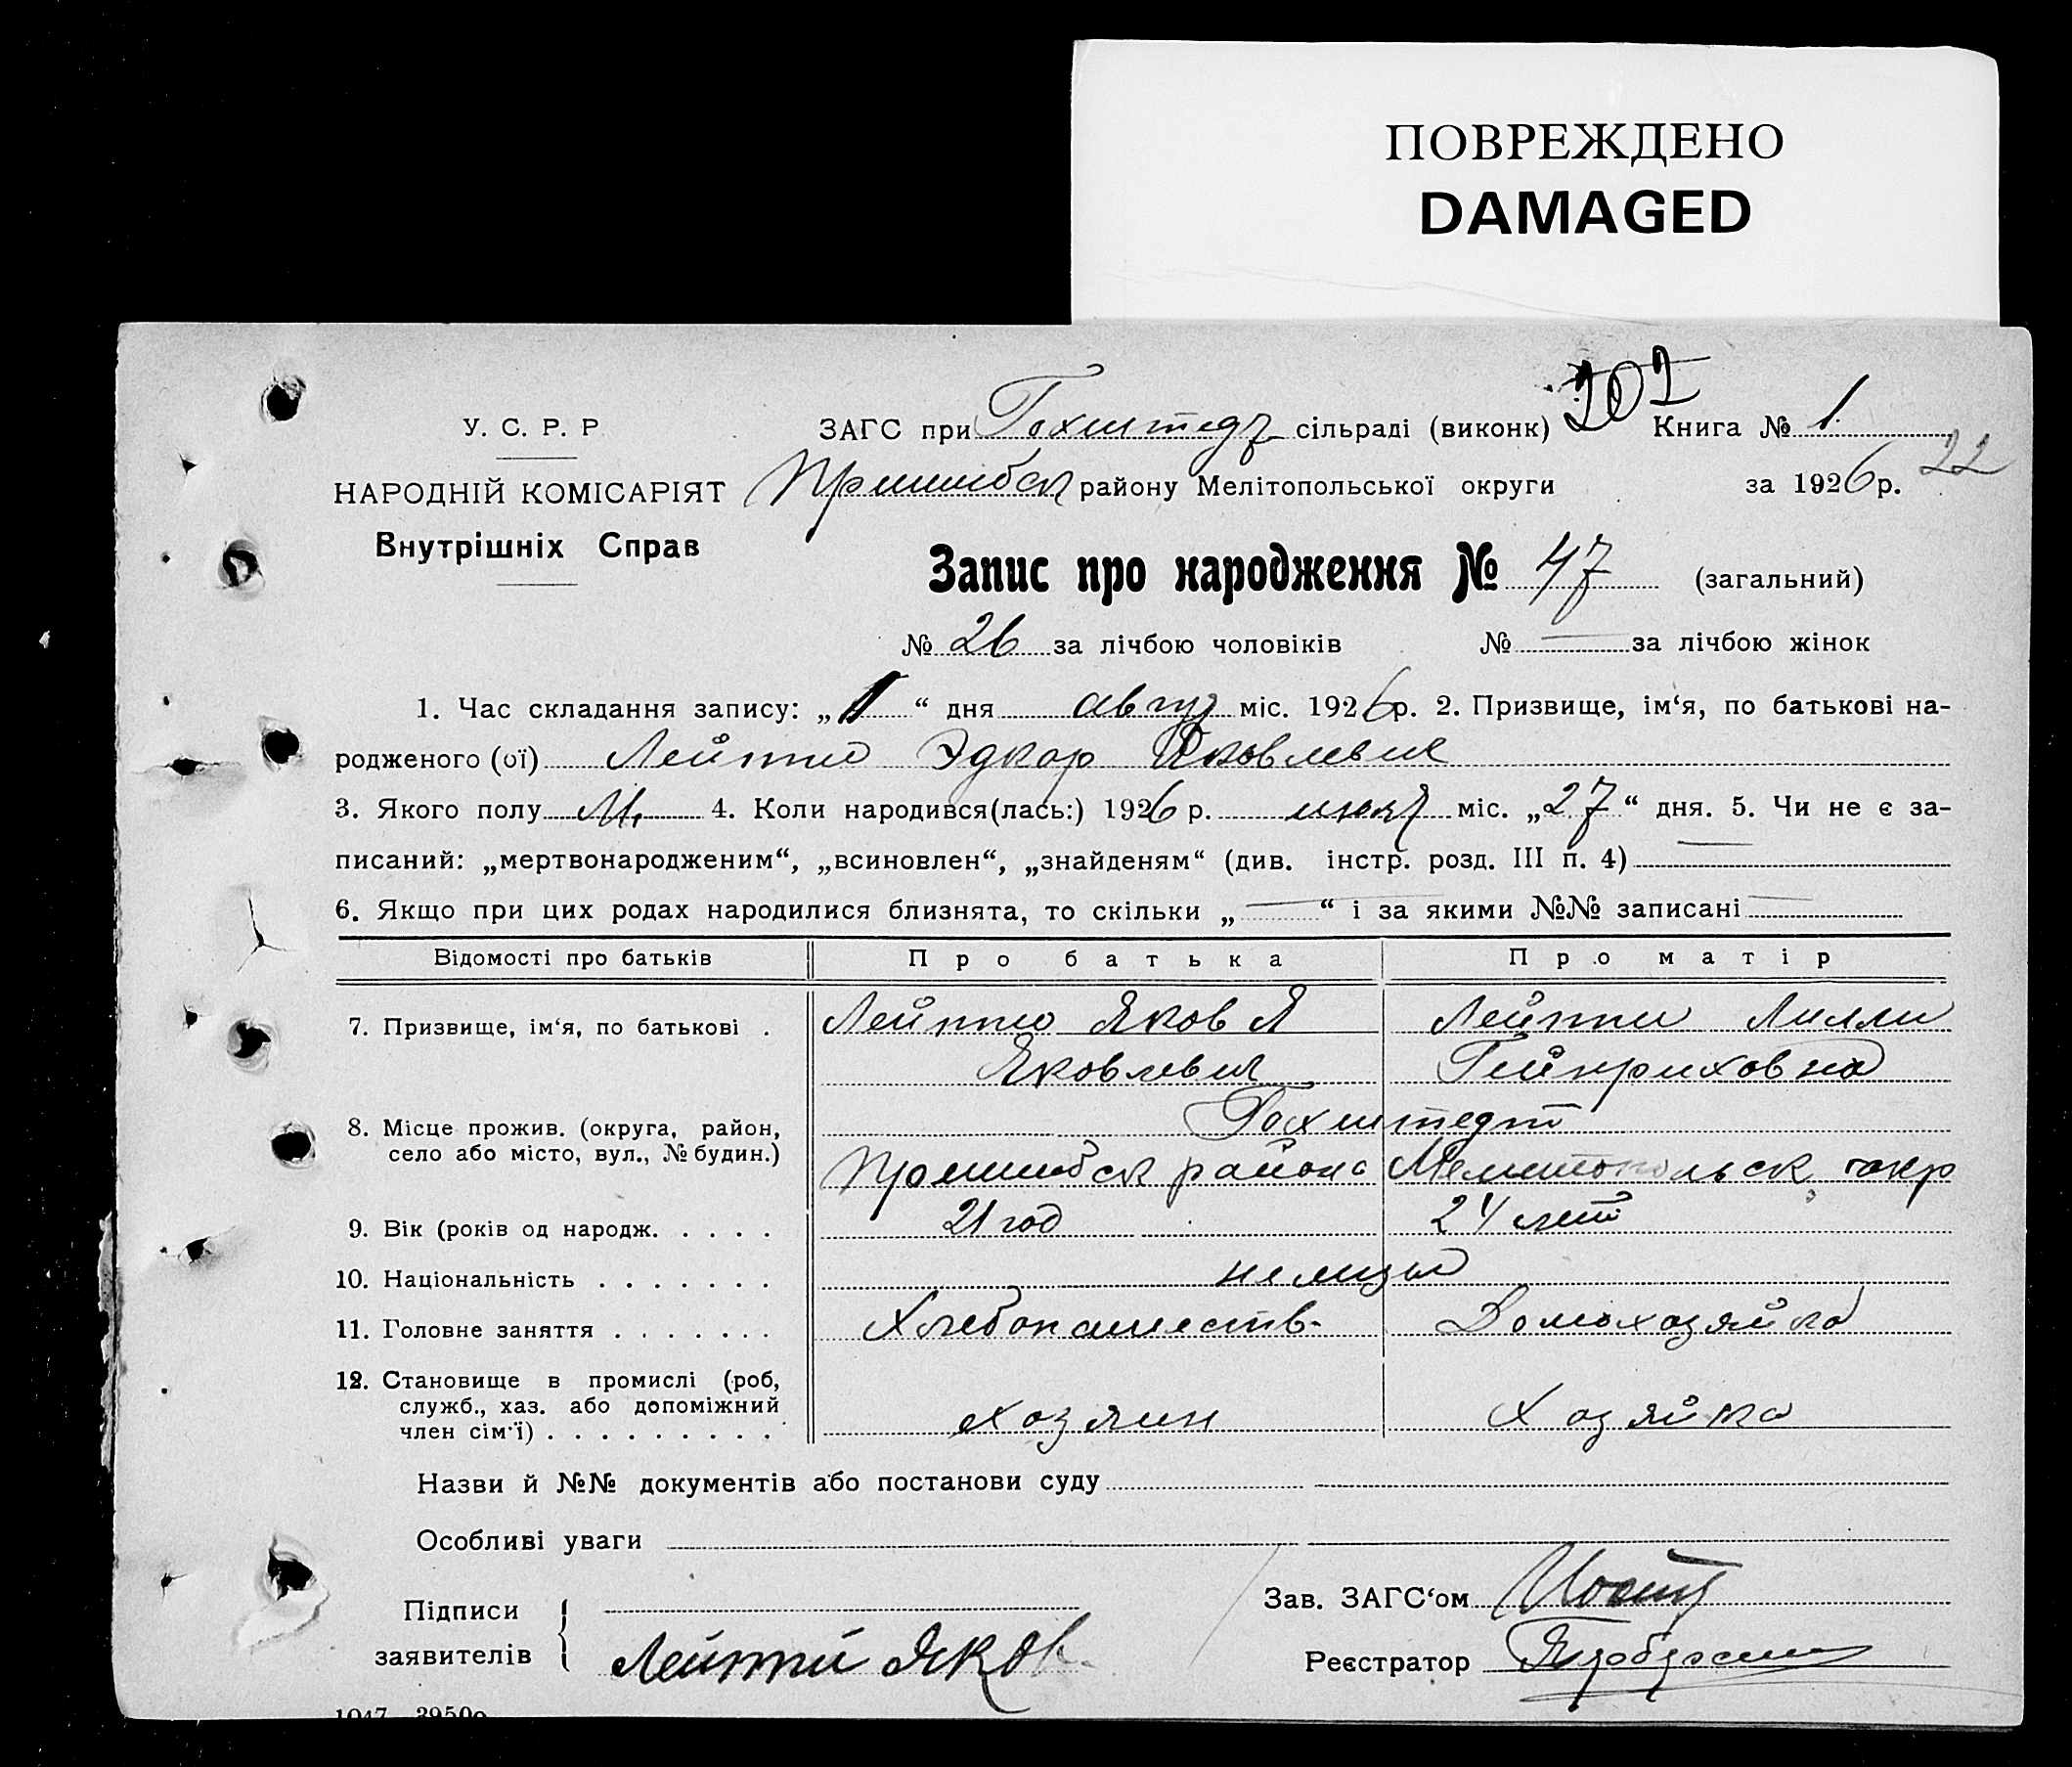 ПОВРЕЖДЕНО
DAMAGED
202
У. С. Р. Р
ЗАГС при Гохштедт сільраді (виконк) Книга № 1.
22
НАРОДНІЙ КОМІСАРІЯТ
Пришибск району Мелітопольської округи за 1926 р.
Внутрішніх Справ
Запис про народження № 47 (загальний)
№ 26 за лічбою чоловіків № — за лічбою жінок
1. Час складання запису: „11“ дня авгус міс. 1926 р. 2. Призвище, ім‘я, по батькові на-
родженого (ої) Лейтте Эдкар Яковлевич
3. Якого полу М. 4. Коли народився(лась:) 1926 р. июля міс. „27“ дня. 5. Чи не є за-
писаний: „мертвонародженим“, „всиновлен“, „знайденям“ (див. інстр. розд. III п. 4) —
6. Якщо при цих родах народилися близнята, то скільки „—“ і за якими №№ записані —
Відомості про батьків Про батька Про матір
7. Призвище, ім‘я, по батькові . Яков Я Лилли
Яковлевич Гейнриховна
8. Місце прожив. (округа, район,
село або місто, вул., № будин.)
Гохштедт
Пришибск района Мелитопольск окр
9. Вік (років од народж. . . . . 21 год 24 лет
10. Національність . . . . . . . немцы
11. Головне заняття . . . . . . . Хлебопашеств. Домохозяйка
12. Становище в промислі (роб,
служб., хаз. або допоміжний
член сім‘ї) . . . . . . . . . хозяин Хозяйка
Назви й №№ документів або постанови суду
Особливі уваги
Зав. ЗАГС‘ом
Підписи
заявителів
Яков
Реєстратор